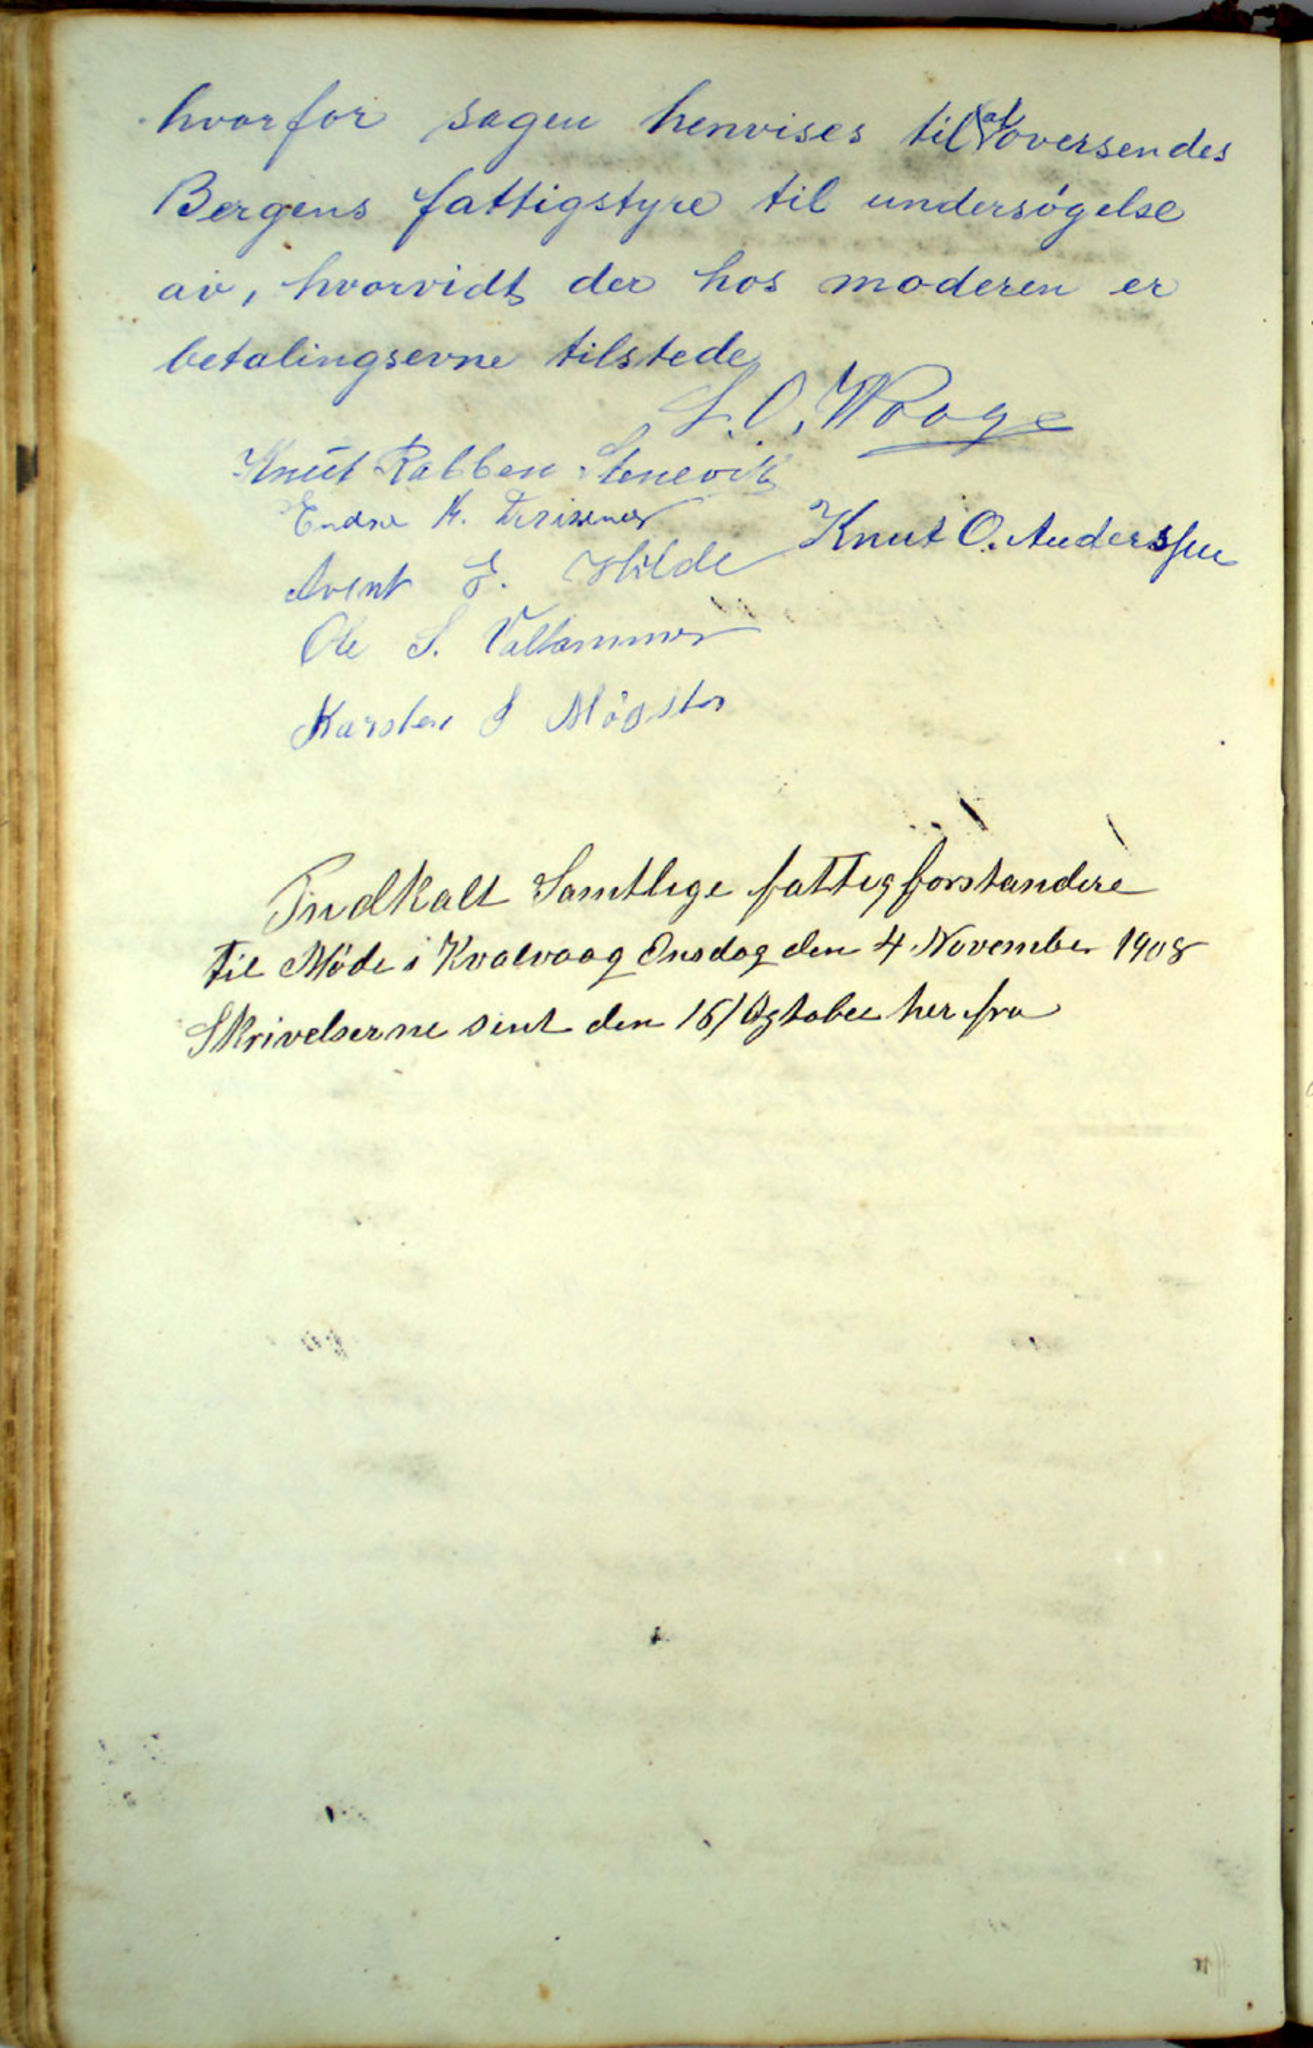 hvorfor sagen henvises til at oversendes
Bergens fattigstyre til undersøgelse
av, hvorvidt der hos moderen er
betalingsevne tilstede
S. O. Waage
Knut Rabben Stenevik
Endre K.
Knut O. Anderssen
Arent E. Hilde
Ole S. Valhammer
Karsten J Møgster
Indkalt Samtlige fattigforstandere
til Møde i Kvalvaag Onsdag den 4 November 1908
Skrivelserne sent den 16/ Ogtober her fra